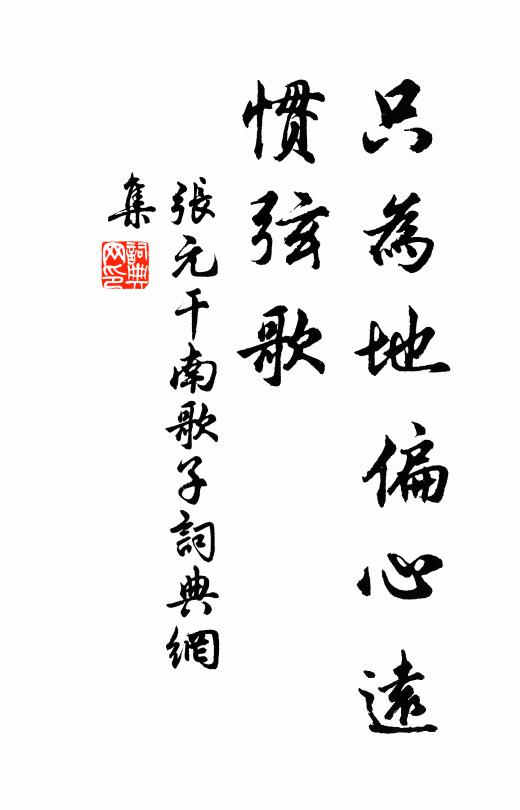 只為地偏心遠
慣弦歌
張元干南歌子詞典網
集
詞典網印